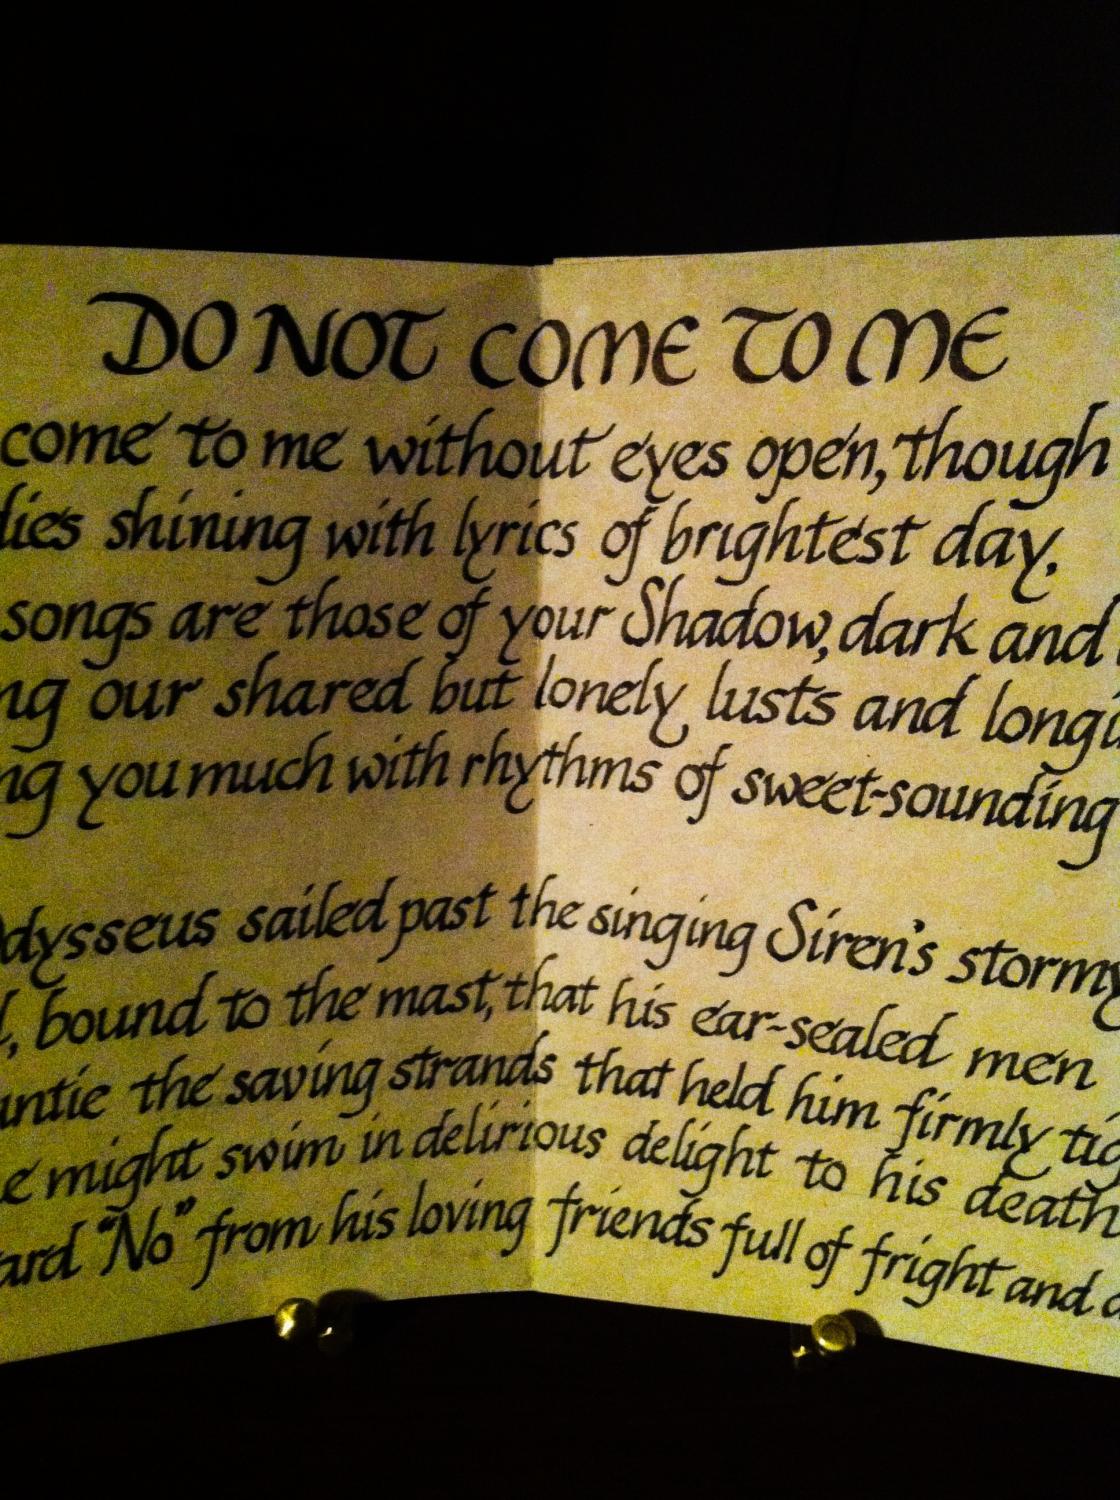 DO NOT COME TO ME
come to me without eyes open, though
dies shining with lyrics of brightest day.
songs are those of your Shadow, dark and
ng our shared but lonely lusts and longi
ng you much with rhythms of sweet-sounding
Odysseus sailed past the singing Siren's stormy
d, bound to the mast, that his ear-sealed men
untie the saving strands that held him firmly tig
e might swim in delirious delight to his death
ard "No" from his loving friends full of fright and